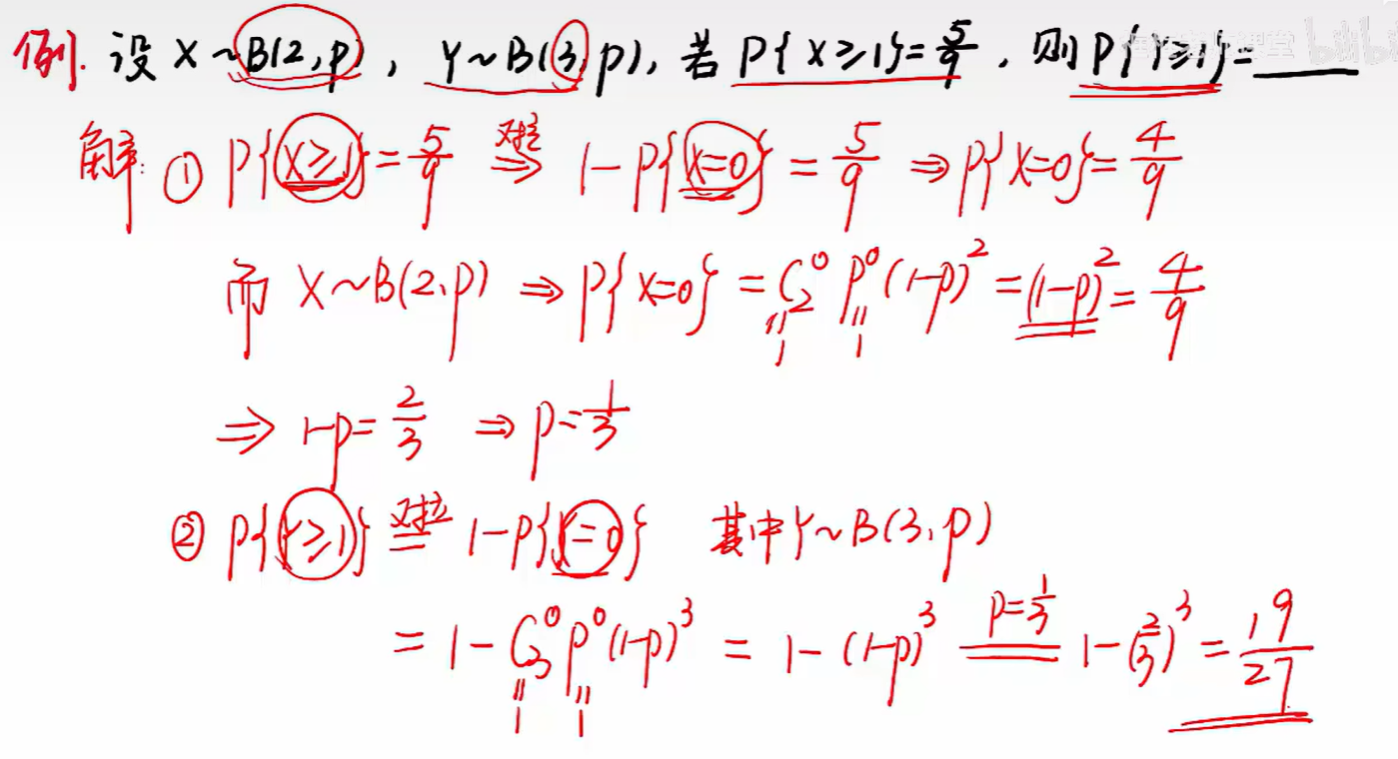 例. 设 X~B(2,p), Y~B(3,p), 若 P{X≥1}=5/9, 则 P{Y≥1}=____
解: ① P{X≥1}=5/9 对立⇒ 1-P{X=0}=5/9 ⇒ P{X=0}=4/9
而 X~B(2,p) ⇒ P{X=0}=C₂⁰p⁰(1-p)²=(1-p)²=4/9
॥ ॥
1 1
⇒ 1-p=2/3 ⇒ p=1/3
② P{Y≥1} 对立= 1-P{Y=0} 其中Y~B(3,p)
=1-C₃⁰p⁰(1-p)³=1-(1-p)³ p=1/3 1-(2/3)³=19/27
॥ ॥
1 1